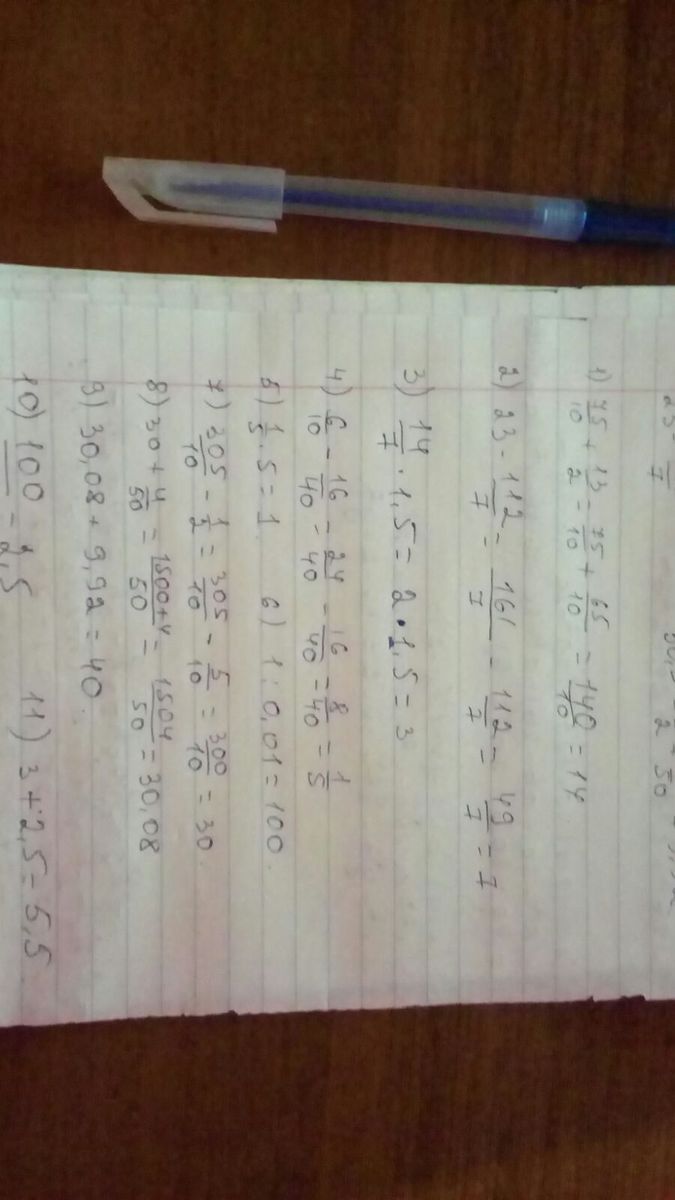 23 - /7 2 + 50
1) 75/10 + 13/2 = 75/10 + 65/10 = 140/10 = 14
2) 23 - 112/7 = 161/7 - 112/7 = 49/7 = 7
3) 14/7 · 1,5 = 2 · 1,5 = 3
4) 6/10 - 16/40 = 24/40 - 16/40 = 8/40 = 1/5
5) 1/5 · 5 = 1 6) 1 : 0,01 = 100
7) 305/10 - 1/2 = 305/10 - 5/10 = 300/10 = 30
8) 30 + 4/50 = 1500+4/50 = 1504/50 = 30,08
9) 30,08 + 9,92 = 40.
10) 100/ = 2,5 11) 3 + 2,5 = 5,5